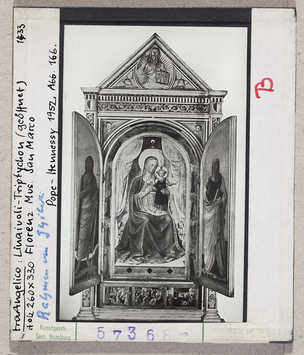 Fra Angelico: Linaiuoli-Triptychon (geöffnet) 1433
Holz 260 x 330 Florenz Mus. San Marco
Rahmen von
Pope-Hennessy 1952, Abb. 166.
B
Kunstgesch.
Sem. Hamburg
5736